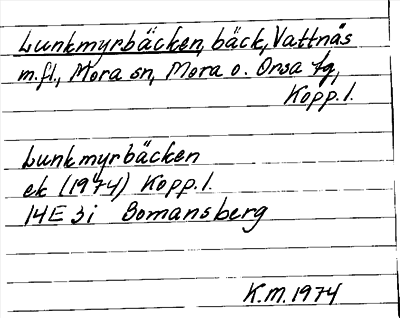 Lunkmyrbäcken, bäck, Vattnäs
m.fl., Mora sn, Mora o. Orsa tg,
Kopp. l.
Lunkmyrbäcken
ek (1974) Kopp. l.
14E 3i Bomansberg
K.M. 1974